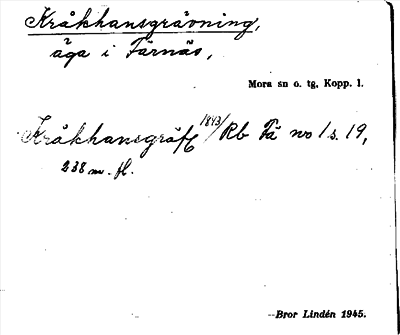 Kråkhansgrävning,
äga i Färnäs,
Mora sn o. tg, Kopp. l.
Kråkhansgräft 1843/Rb Fä no 1 s. 19,
238 m. fl.
Bror Lindén 1945.